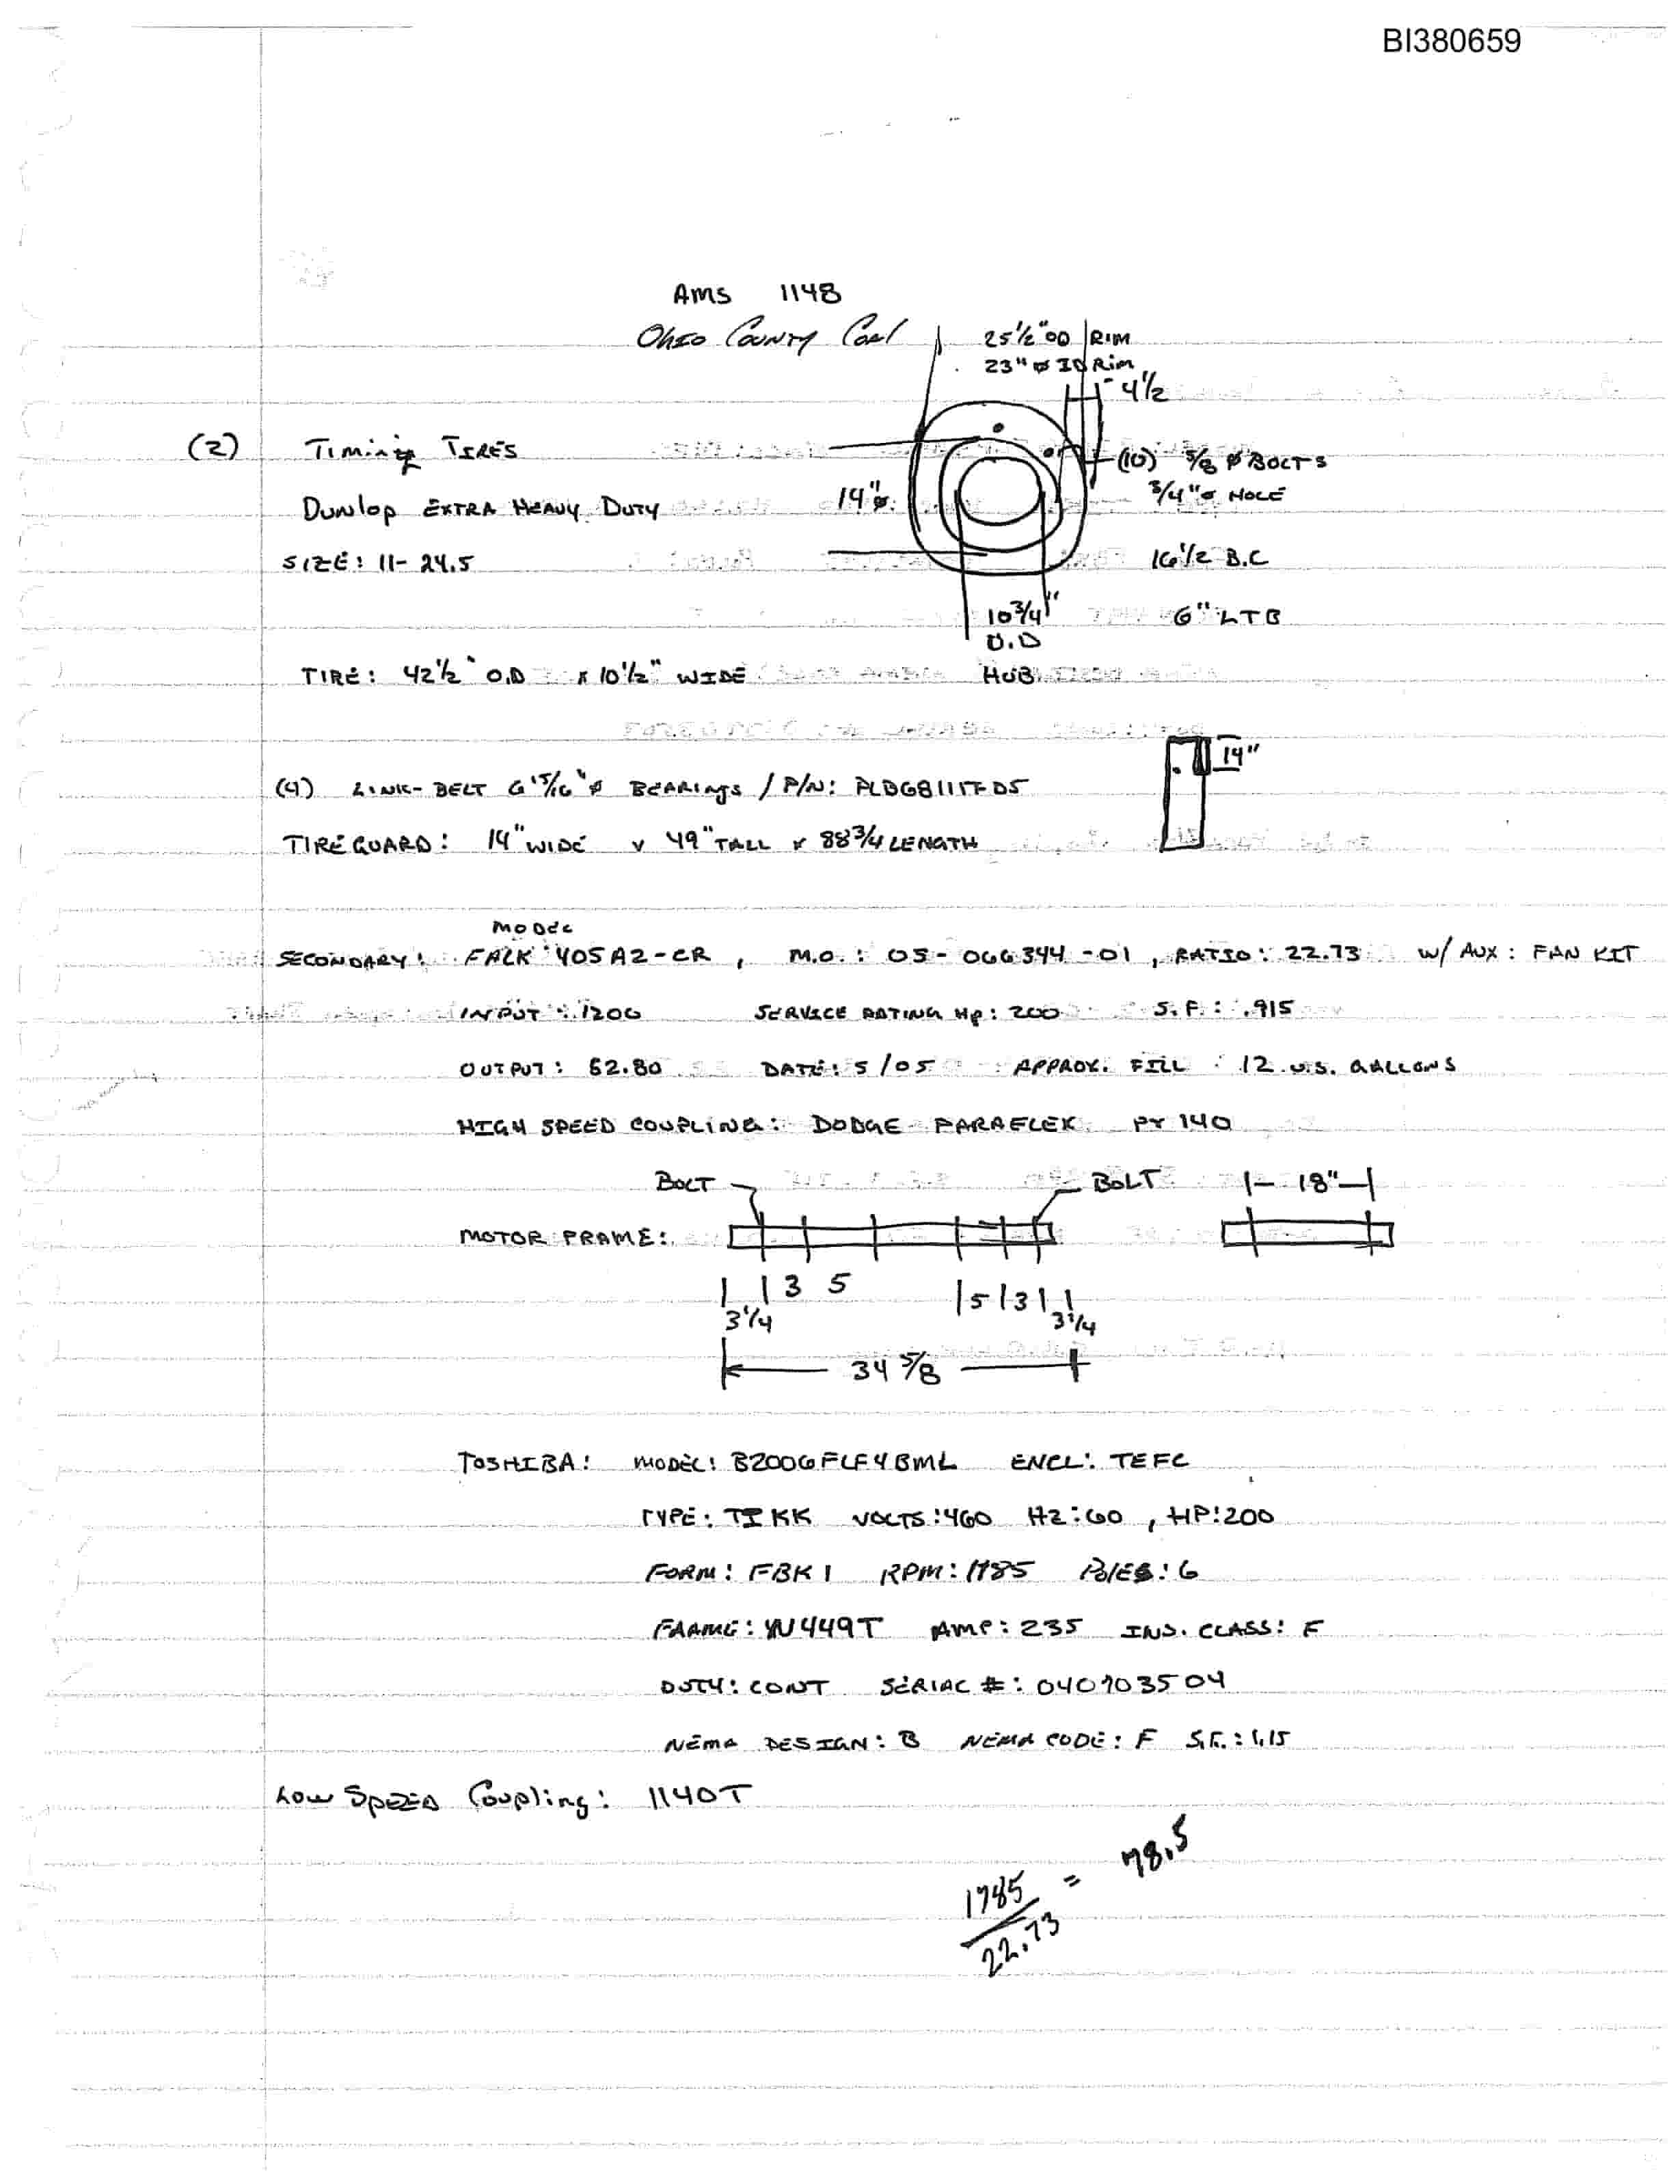 BI380659
Ams 1148
Ohio County Coal
25 1/2" OD RIM
23" ø ID Rim
4 1/2
(2) Timing TIRES
(10) 5/8 ø BOLTS
3/4" ø HOLE
Dunlop EXTRA HEAVY DUTY
14" ø
SIZE: 11-24.5
16 1/2 B.C
10 3/4"
O.D
HUB
6" LTB
TIRE: 42 1/2" O.D x 10 1/2" WIDE
14"
(4) LINK-BELT 6 15/16" ø BEARINGS / P/N: PLBG8111FD5
TIREGUARD: 14" WIDE x 49" TALL x 88 3/4 LENGTH
MODEL
SECONDARY: FALK 405A2-CR, M.O.: 05-066344-01, RATIO: 22.73 W/ AUX: FAN KIT
INPUT: 1200 SERVICE RATING HP: 200 S.F.: .915
OUTPUT: 52.80 DATE: 5/05 APPROX. FILL: 12 U.S. GALLONS
HIGH SPEED COUPLING: DODGE PARAFLEX PX 140
BOLT BOLT 18"
MOTOR FRAME:
3 5
5 3
3 1/4 3 1/4
34 5/8
TOSHIBA: MODEL: B2006FLF4BML ENCL: TEFC
TYPE: TIKK VOLTS: 460 HZ: 60, HP: 200
FORM: FBK1 RPM: 1785 POLES: 6
FRAME: 449T AMP: 235 INS. CLASS: F
DUTY: CONT SERIAL #: 040103504
NEMA DESIGN: B NEMA CODE: F S.F.: 1.15
Low SPEED Coupling: 1140T
1785 / 22.73 = 78.5